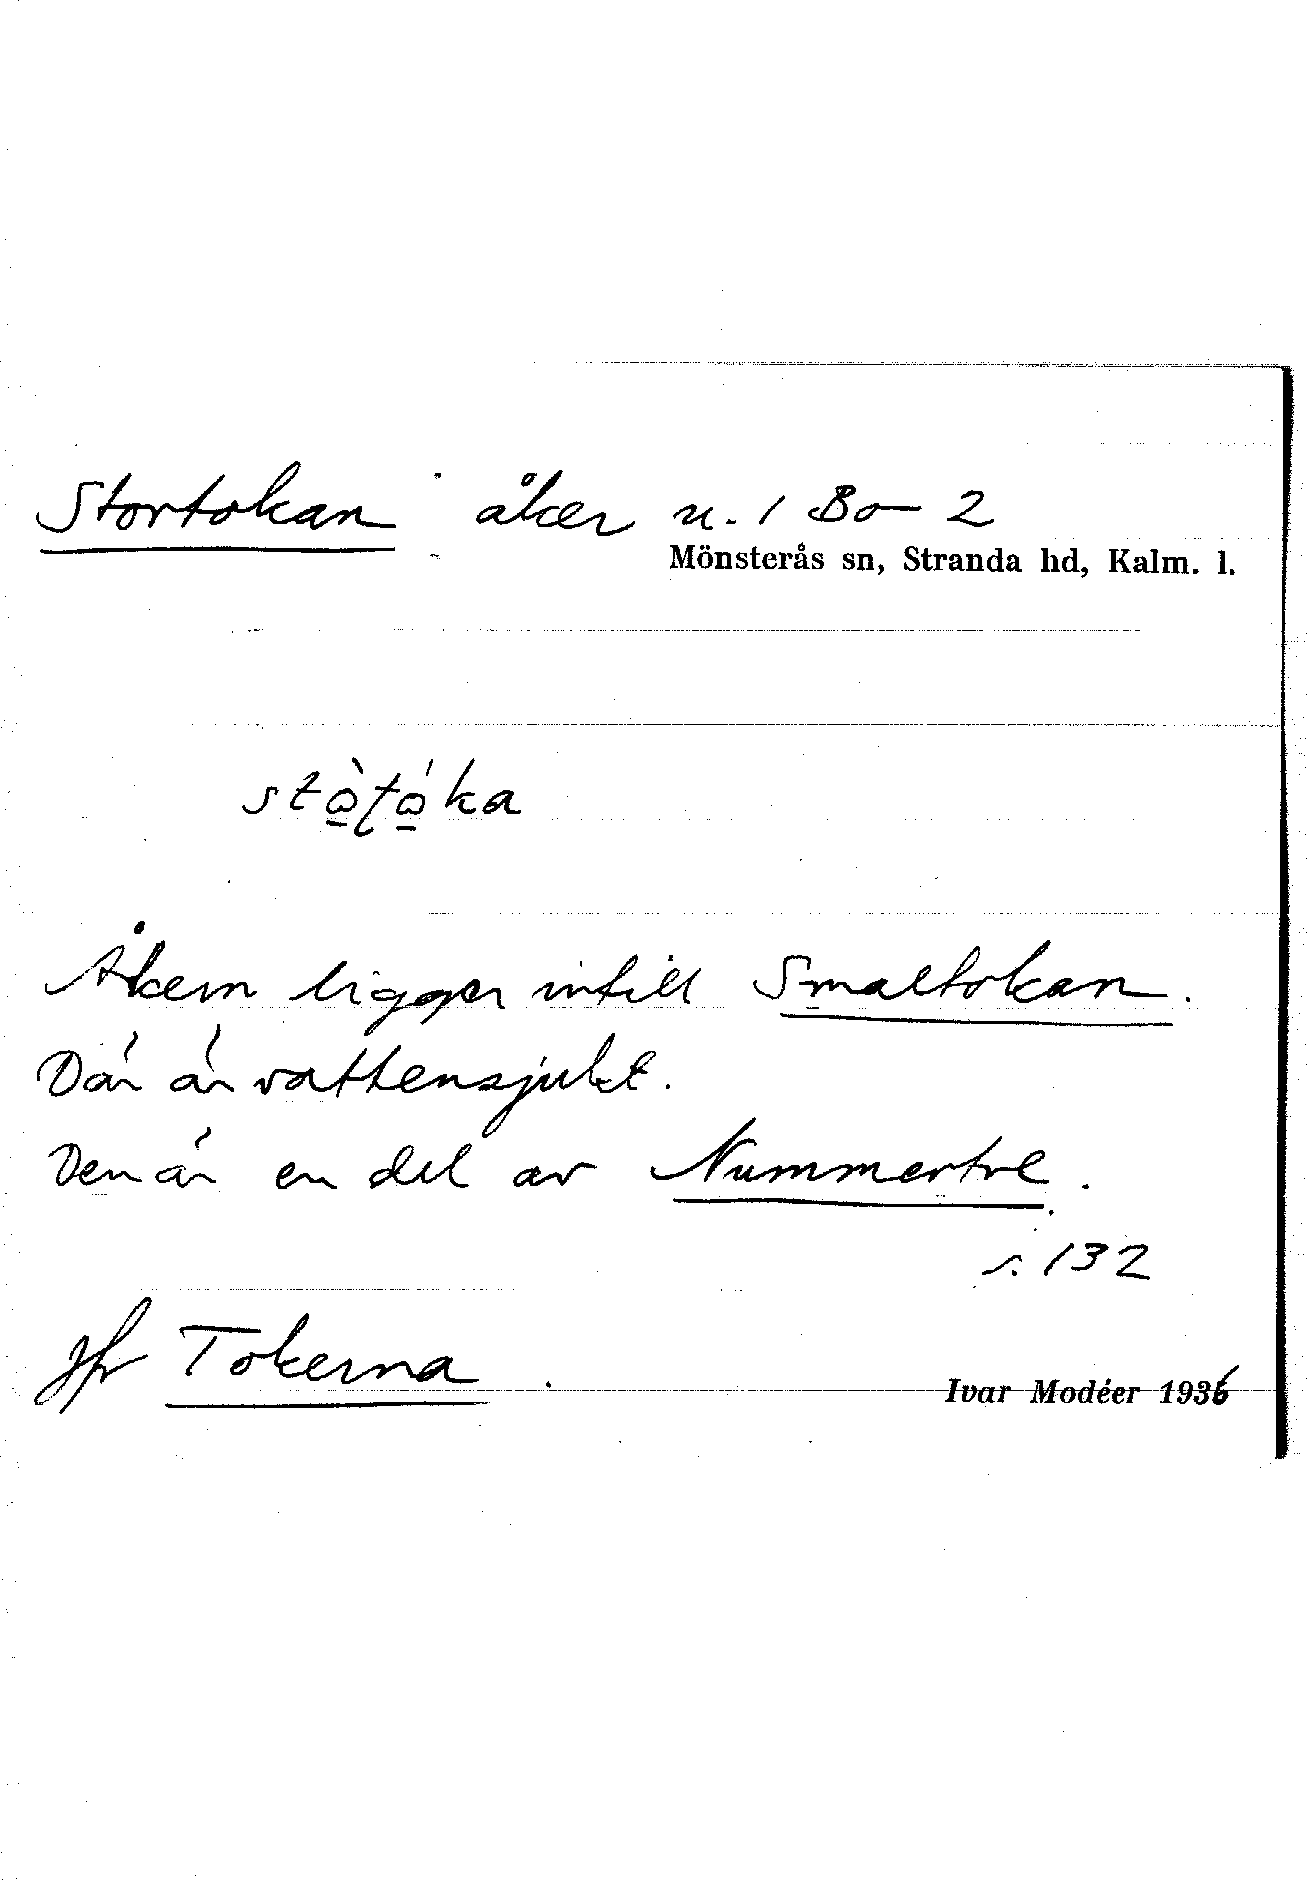 Stortokan åker u. 1 Bo 2
Mönsterås sn, Stranda hd, Kalm. l.
stò̱ʈó̱ka
Åkern ligger intill Smaltokan.
Där är vattensjukt.
Den är en del av Nummertre.
s. 132
Jfr Tokerna
Ivar Modéer 1936